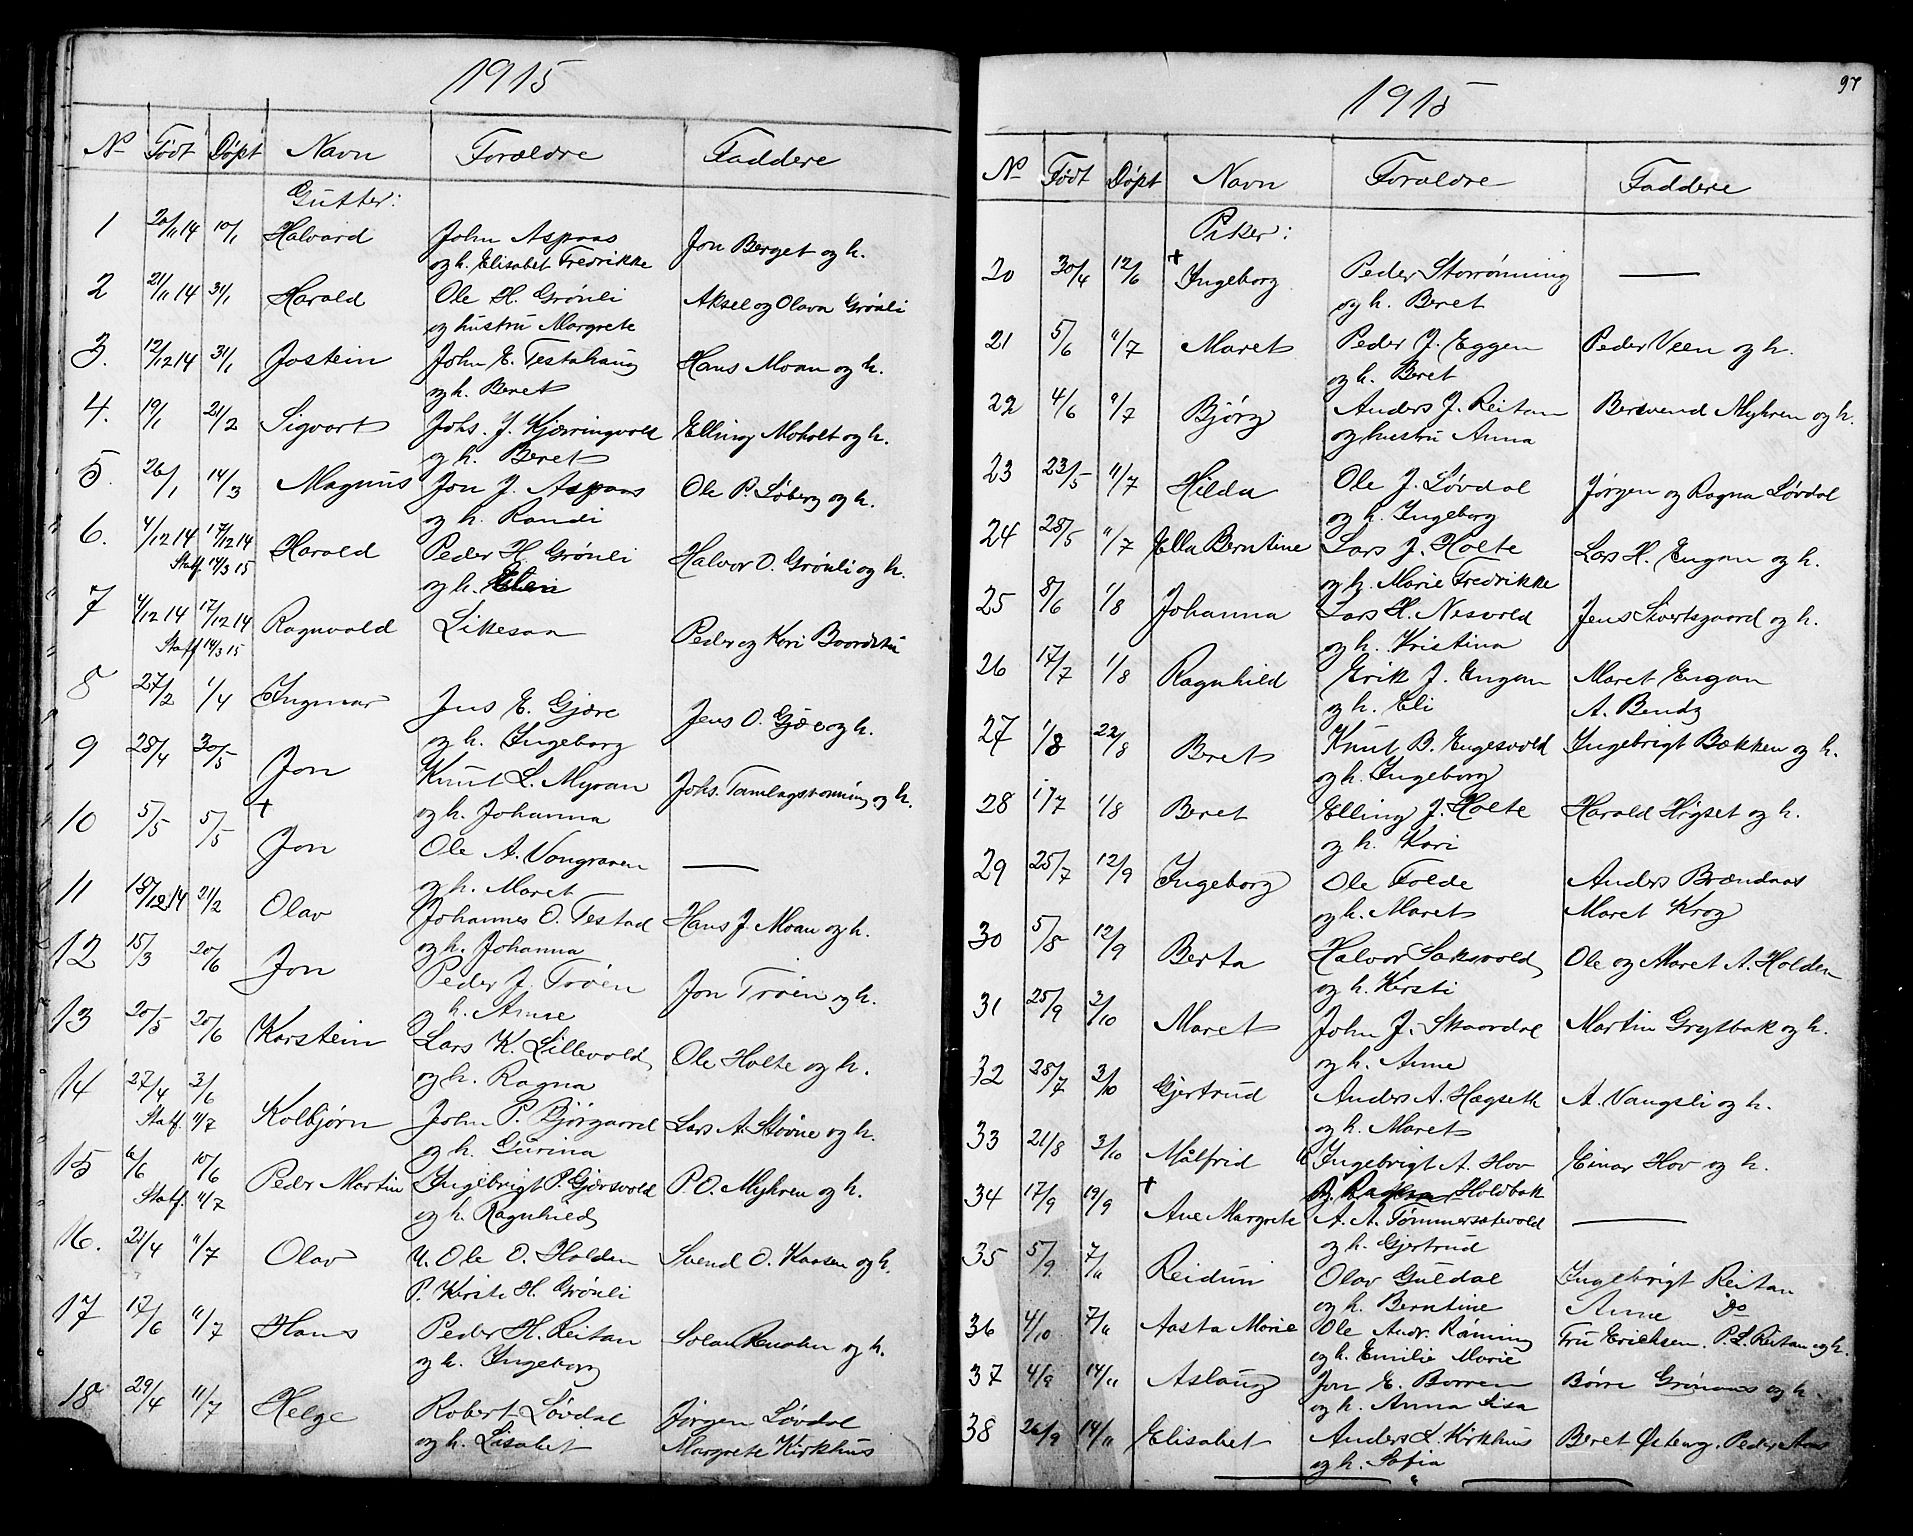 1915
No Født Døpt Navn Forældre Faddere
Gutter:
1 20/11 14 10/1 Halvard John Aspaas Jon Berget og h.
og h. Elisabet Fredrikke
2 21/11 14 31/1 Harald Ole H. Grönli Aksel og Olava Grönli
og hustru Margrete
3. 12/12 14 31/1 Jostein John E. Testahaug Hans Moan og h.
og h. Beret
4. 19/1 21/2 Sigvart Johs. J. Kjærringvold Elling Moholt og h.
og h. Beret
5. 26/1 14/3 Magnus Jon J. Aspaas Ole P. Løberg og h.
og h. Randi
6. 4/12 14 17/12 14 Harald Peder H. Grönli Halvor O. Grönli og h.
Staf. 14/3 15 og h. Elen
7 4/12 14 17/12 14 Ragnvald Likesaa Peder og Kari Baardstu
Staf. 14/3 15
8 27/2 1/4 Ingmar Jens E. Gjære Jens O. Gjære og h.
og h. Ingeborg
9 28/4 30/5 Jon Knut L. Myran Johs. Tamlagsrønning og h.
og h. Johanna
10 5/5 5/5 + Jon Ole A. Vongraven —
og h. Maret
11 18/12 14 21/2 Olav Johannes O. Testad Hans J. Moan og h.
og h. Johanna
12 15/3 20/6 Jon Peder J. Tröen Jon Tröen og h.
h. Anne
13 20/5 20/6 Karstein Lars K. Lillevold Ole Holte og h.
og h. Ragna
14 27/4 3/6 Kolbjørn John P. Bjørgaard Lars A. Støvne og h.
Staf. 11/7 og h. Gurina
15 6/6 10/6 Peder Martin Ingebrigt P. Gjersvold P. O. Myhren og h.
Staf. 11/7 og h. Ragnhild
16. 21/4 11/7 Olav U. Ole O. Holden Svend O. Kaasen og h.
P. Kirsti H. Grönli
17 17/6 11/7 Hans Peder H. Reitan og h.
og h. Ingeborg
18 29/4 11/7 Helge Robert Løvdal Jørgen Løvdal
og h. Lisabet Margrete Kirkhus
97
1915
No Født Døpt Navn Forældre Faddere
Piker:
20 30/4 12/6 + Ingeborg Peder Storrønning —
og h. Beret
21 5/6 11/7 Maret Peder J. Eggen Peder Veen og h.
og h. Beret
22 4/6 11/7 Bjørg Anders J. Reitan Bersvend Myhren og h.
og hustru Anna
23 23/5 11/7 Hilda Ole J. Løvdal Jørgen og Ragna Løvdal
og h. Ingeborg
24 28/5 11/7 Ella Berntine Lars J. Holte Lars H. Engan og h.
og h. Marie Fredrikke
25 8/6 1/8 Johanna Lars H. Nesvold Jens Svartsgaard og h.
og h. Kristina
26 17/7 1/8 Ragnhild Erik J. Engan Maret Engan
og h. Eli A. Bendz
27 1/8 22/8 Beret Knut B. Engesvold Ingebrigt Bækken og h.
og h. Ingeborg
28 1/7 1/8 Beret Elling J. Holte Harald Higset og h.
og h. Kari
29 25/7 12/9 Ingeborg Ole Folde Anders Brændaas
og h. Maret Maret Krog
30 5/8 12/9 Berta Halvor Saksvold Ole og Maret A. Holden
og h. Kirsti
31 25/9 3/10 Maret John J. Skaardal Martin Grytbak og h.
og h. Anne
32 28/7 3/10 Gjertrud Anders A. Hægseth A. Vangsli og h.
og h. Maret
33 21/8 3/10 Målfrid U. Ingebrigt A. Hov Einar Hov og h.
P. Ragna Holdbak
34 17/9 19/9 + Ane Margrete A. A. Tømmersætvold —
og h. Gjertrud
35 5/9 7/11 Reidun Olav Guldal Ingebrigt Reitan
og h. Berntine Anne Do
36 4/10 7/11 Aasta Marie Ole Andr. Rønning Fru Ericksen. P. L. Reitan og h.
og h. Emilie Marie
37 4/9 14/11 Aslaug Jon E. Borren Børre Grønaas og h.
og h. Anna Lisa
38 26/9 14/11 Elisabet Anders L. Kirkhus Beret Østeng. Peder Aas
og h. Sofia